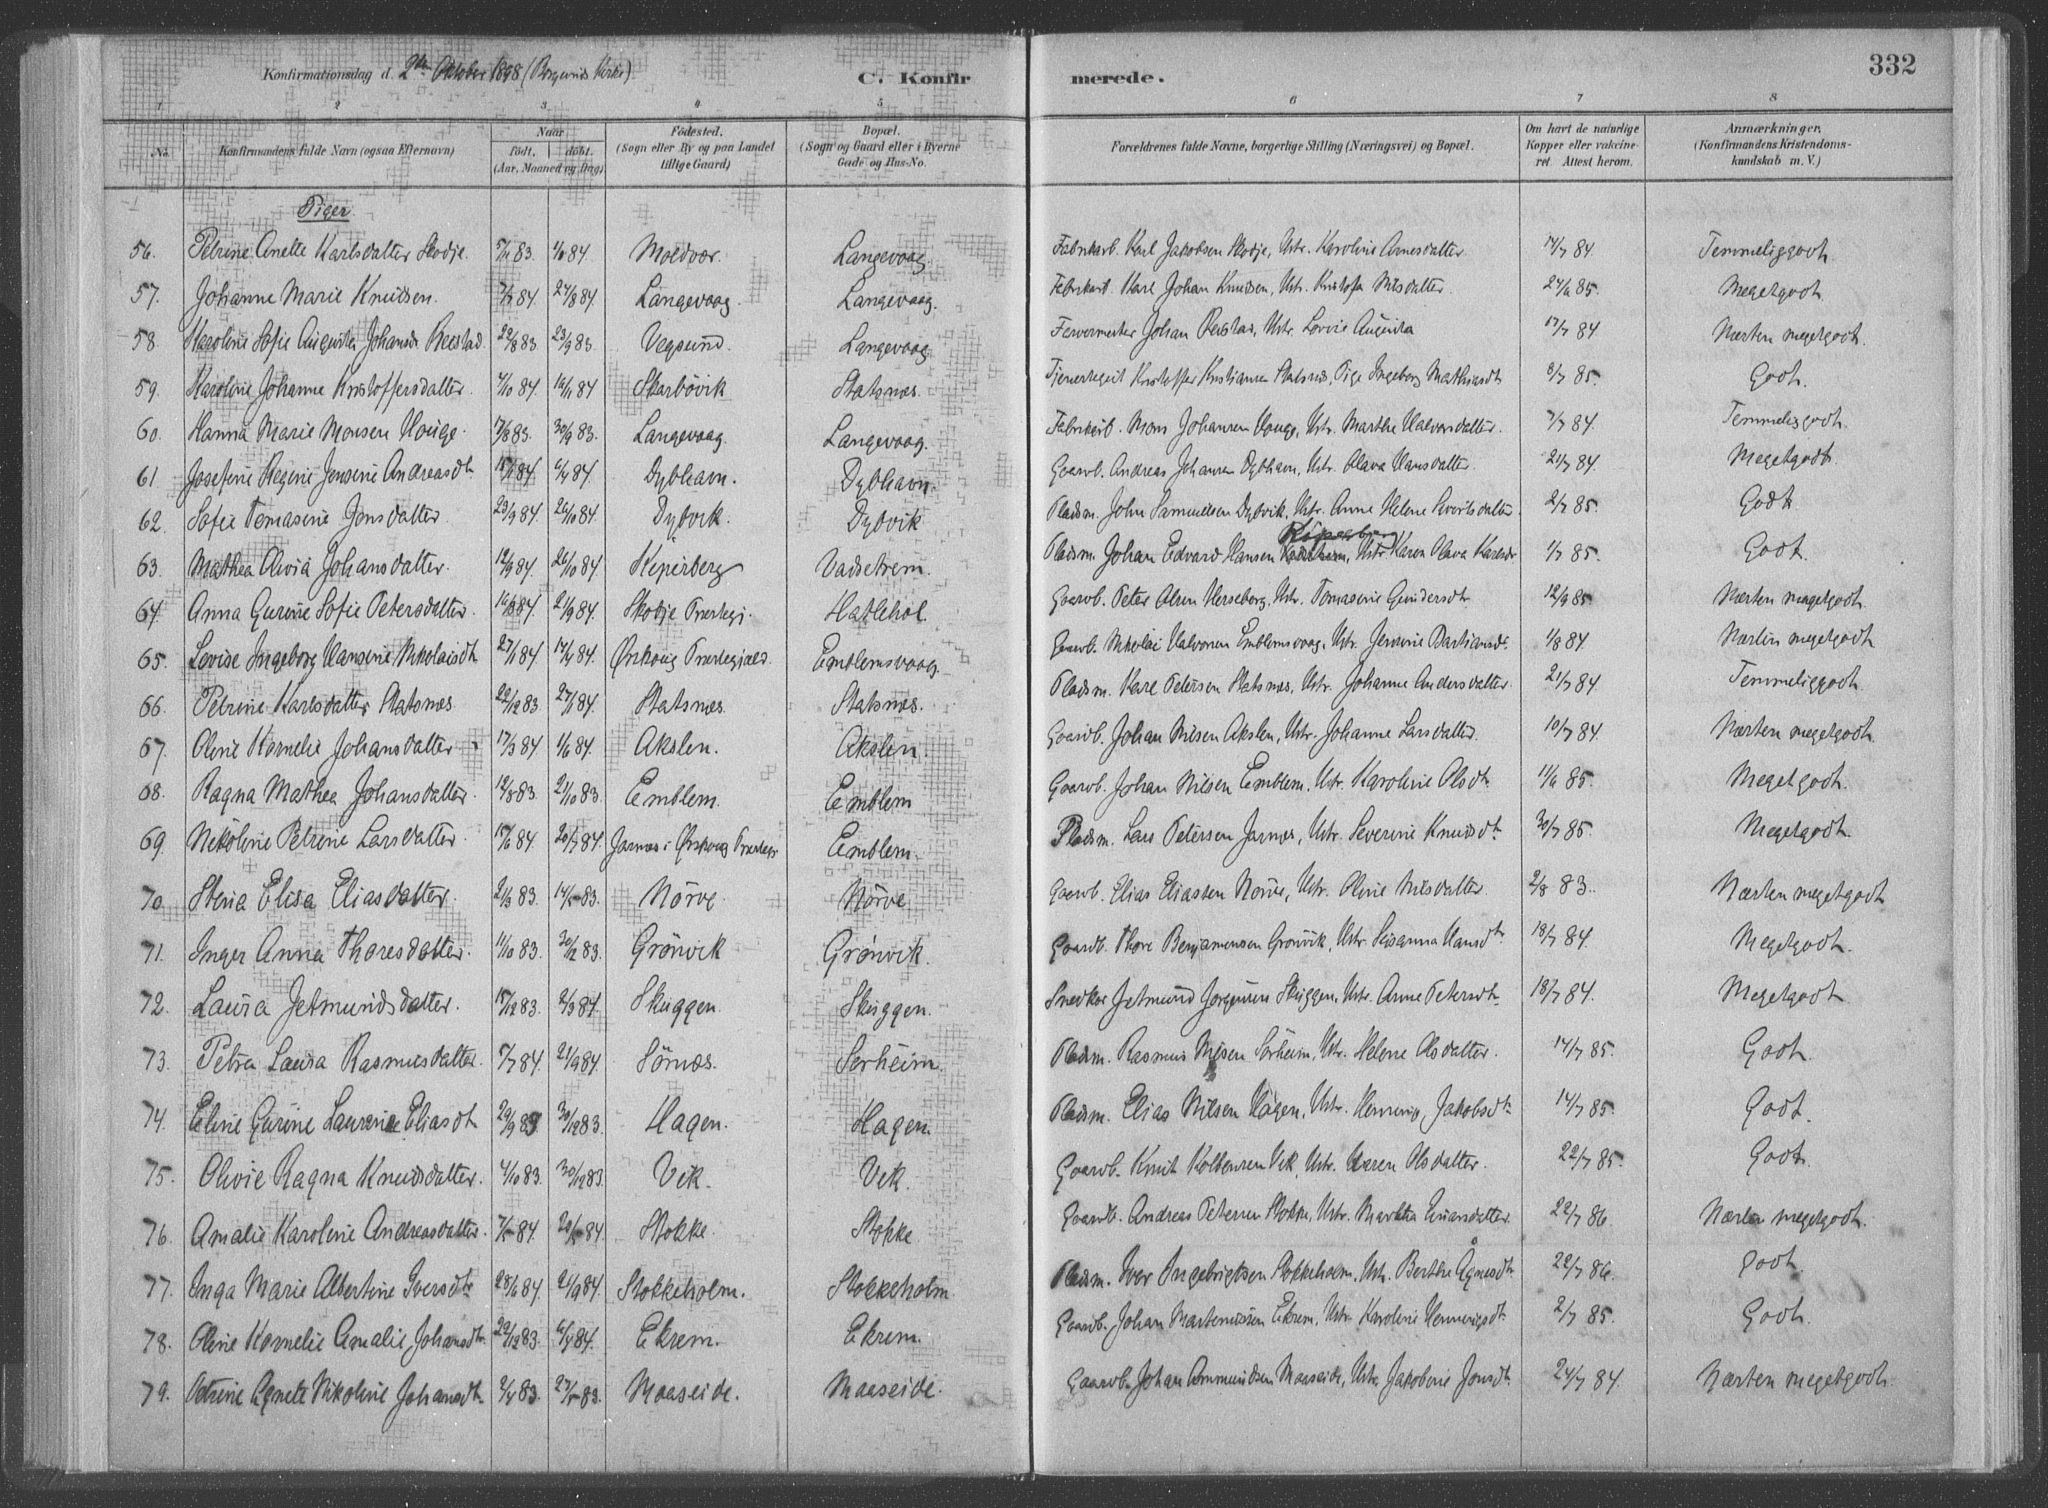 Konfirmationsdag d. 2den Oktober 1898 (Borgunds Kirke)
C. Konfirmerede.
332
1 2 3 4 5 6 7 8
No.
Konfirmandens fulde Navn (ogsaa Efternavn)
Naar
födt. döbt.
(Aar, Maaned og Dag)
Födested.
(Sogn eller By og paa Landet tillige Gaard)
Bopæl.
(Sogn og Gaard eller i Byerne Gade og Hus-No.
Forældrenes fulde Navne, borgerlige Stilling (Næringsvei) og Bopæl.
Om havt de naturlige Kopper eller vakcineret. Attest herom.
Anmærkninger.
(Konfirmandens Kristendomskundskab m. V.)
Piger
56. Petrine Anette Karlsdatter Skodje. 83 84 Moldvær. Langevaag. Fabrikarb. Karl Jakobsen Skodje, Ustr. Karoline Arnesdatter 14/7 84. Temmeliggodt.
57. Johanne Marie Knudsen. 84 27/8 84 Langevaag. Langevaag. Fabrikarb. Karl Johan Knudsen, Ustr. Kristofa Nilsdatter. 24/6 85. Megetgodt.
58. Karoline Sofie Augusta Johansdt Reestad 29/8 83 23/9 83. Vegsund. Langevaag. Johan Reestad, Ustr. Lovise Augusta 17/7 84 Næsten megetgodt.
59. Karoline Johanne Kristoffersdatter. 4/10 84 16/11 84 Skarbövik Statsnæs. Kristoffer Kristiansen Statsnæs, Pige Ingeborg Mathiasdt 8/7 85. Godt.
60. Hanna Marie Monsen Houge. 17/8 83. 30/9 83. Langevaag. Langevaag. Fabrikarb. Mons Johansen Houge, Ustr. Marthe Halvorsdatter. 7/7 84. Temmeliggodt.
61. Josefine Regine Jensine Andreasdt. 15/1 84 6/4 84. Dybhavn. Dybhavn. Gaardb. Andreas Johansen Dybhavn, Ustr. Olava Hansdatter. 21/7 84. Megetgodt.
62. Sofie Tomasine Jonsdatter 23/9 84 26/10 84. Dybvik. Dybvik Pladsm. John Samuelsen Dybvik, Ustr. Anne Helene Sivertsdatter. 2/7 85. Godt
63. Mathea Olivia Johansdatter. 12/9 84 26/10 84 Kiperberg Vadsetrem. Pladsm. Johan Edvard Hansen, Ustr. Karen Olava Karlsdr 1/7 85. Godt.
64. Anna Gurine Sofie Petersdatter. 16/8 84. 21/9 84. Skodje Præstegj. Hatlehol. Gaardb. Peter Olsen Herseberg, Ustr. Tomasine Gundersdt 12/9 85. Næsten megetgodt.
65. Lovise Ingeborg Hansine Nikolaisdt 27/1 84 14/4 84. Ørskoug Præstegjæld. Emblemsvaag. Gaardb. Nikolai Halvorsen Emblemsvaag, Ustr. Jensine Bastiansdt. 1/8 84 Næsten megetgodt.
66. Petrine Karlsdatter Statsnæs 22/12 83 27/1 84. Statsnæs. Statsnæs. Pladsm. Karl Petersen Statsnæs, Ustr. Johanne Andersdatter. 21/7 84. Temmeliggodt.
67. Oline Kornelie Johansdatter 17/3 84 1/6 84. Akslen. Akslen. Gaardb. Johan Nilsen Akslen, Ustr. Johanne Larsdatter. 10/7 84. Næsten megetgodt.
68. Ragna Mathea Johansdatter. 12/8 83. 21/10 83. Emblem. Emblem Gaardb. Johan Nilsen Emblem. Ustr. Karoline Olsdt. 11/6 85. Megetgodt.
69. Nikoline Petrine Larsdatter. 15/6 84. 20/7 84. Jarnæs i Ørskoug Præstegj. Emblem. Pladsm. Lars Petersen Jarnæs, Ustr. Severine Knudsdt. 30/7 85. Megetgodt.
70. Stena Elisa Eliasdatter. 21/3 83. 14/5 83. Nörve. Nörve Gaardb. Elias Eliassen Nörve, Ustr. Oline Nilsdatter. 2/8 83. Næsten megetgodt
71. Inger Anna Thoresdatter. 11/10 83. 30/12 83. Grönvik Grönvik. Gaardb. Thore Benjaminsen Grönvik, Ustr. Susanna Hansdt. 18/7 84. Megetgodt.
72. Laura Jetmundsdatter. 15/12 83. 2/3 84. Skuggen. Skuggen. Snedker Jetmund Jörgensen Skuggen, Ustr. Anne Petersdt. 18/7 84. Megetgodt
73. Petra Laura Rasmusdatter. 7/7 84. 21/9 84. Sörnæs. Sorheim. Pladsm. Rasmus Nilsen Sörheim, Ustr. Helene Olsdatter. 14/7 85. Godt.
74. Eline Gurine Laurine Eliasdt 29/9 83 30/12 83. Hagen. Hagen. Pladsm. Elias Nilsen Hagen, Ustr. Jakobsdt. 14/7 85. Godt.
75. Olivie Ragna Knudsdatter. 4/10 83. 30/12 83. Vik. Vik. Gaardb. Knut Kolbensen Vik, Ustr. Karen Olsdatter. 22/7 85. Godt.
76. Amalie Karoline Andreasdatter. 7/5 84. 20/5 84. Stokke. Stokke Gaardb. Andreas Petersen Stokke, Ustr. Martha 22/7 86. Næsten megetgodt.
77. Inga Marie Albertine Iversdt. 28/6 84 21/9 84. Stokkeholm. Stokkeholm. Pladsm. Iver Ingebrigtsen Stokkeholm, Ustr. Berthe Ågnesdt. 22/7 86. Godt.
78. Oline Kornelie Amalie Johansdt. 29/12 83. 6/4 84. Ekrem. Ekrem. Gaardb. Johan Martinussen Ekrem, Ustr. Karoline Henningsdt. 2/7 85. Godt.
79. Petrine Agnete Nikoline Johansdt. 2/4 83. 27/5 83. Maaseide. Maaseide. Gaardb. Johan Ammundsen Maaseide, Ustr. Jakobine Jonsdt. 24/7 84. Næsten megetgodt.